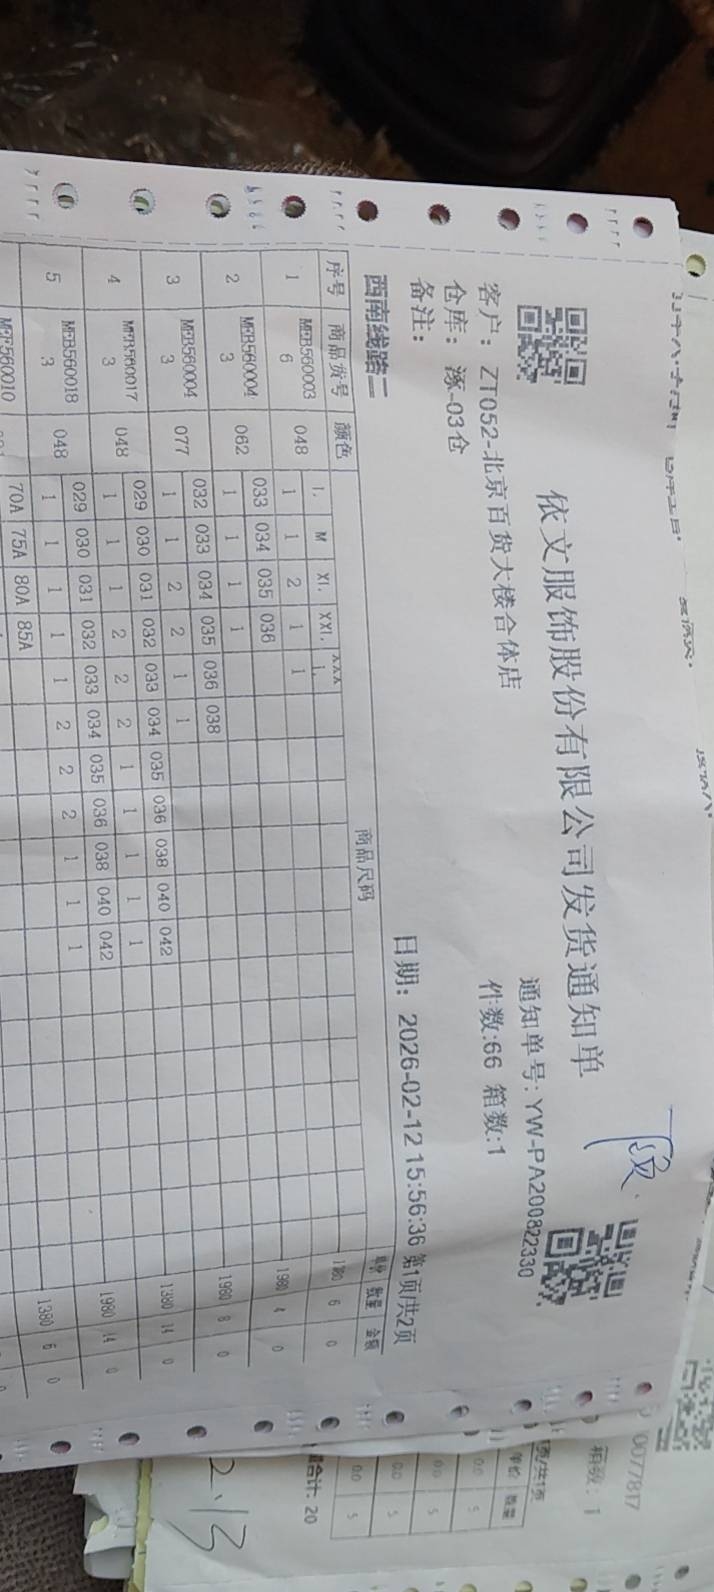 依文服饰股份有限公司发货通知单
通知单号:YW-PA200822330
客户：ZT052-北京百货大楼合体店
件数:66 箱数:1
仓库：涿-03仓
备注：
日期：2026-02-12 15:56:36 第1页/共2页
西南线路二
序号 商品货号 颜色 商品尺码 单价 数量 金额
L M XL XXL XXXL
1 MEB5600036 048 1 1 2 1 1 6 0
033 034 035 036
2 MEB5600043 062 1 1 1 1 1980 4 0
032 033 034 035 036 038
3 MEB5600043 077 1 1 2 2 1 1 1980 8 0
029 030 031 032 033 034 035 036 038 040 042
4 MEB5600173 048 1 1 1 2 2 2 1 1 1 1 1 1380 14 0
029 030 031 032 033 034 035 036 038 040 042
5 MEB5600183 048 1 1 1 1 1 2 2 2 1 1 1 1980 14 0
70A 75A 80A 85A
1380 6 0
0077817
箱数：1
页/共1页
单价 数量
0.0 5
0.0 5
0.0 5
0.0 5
合计：20
2.13